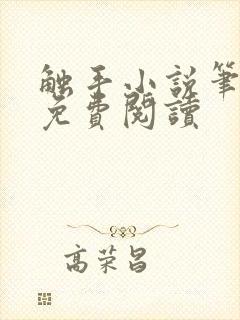 触手小说笔
免費閱讀
高荣昌